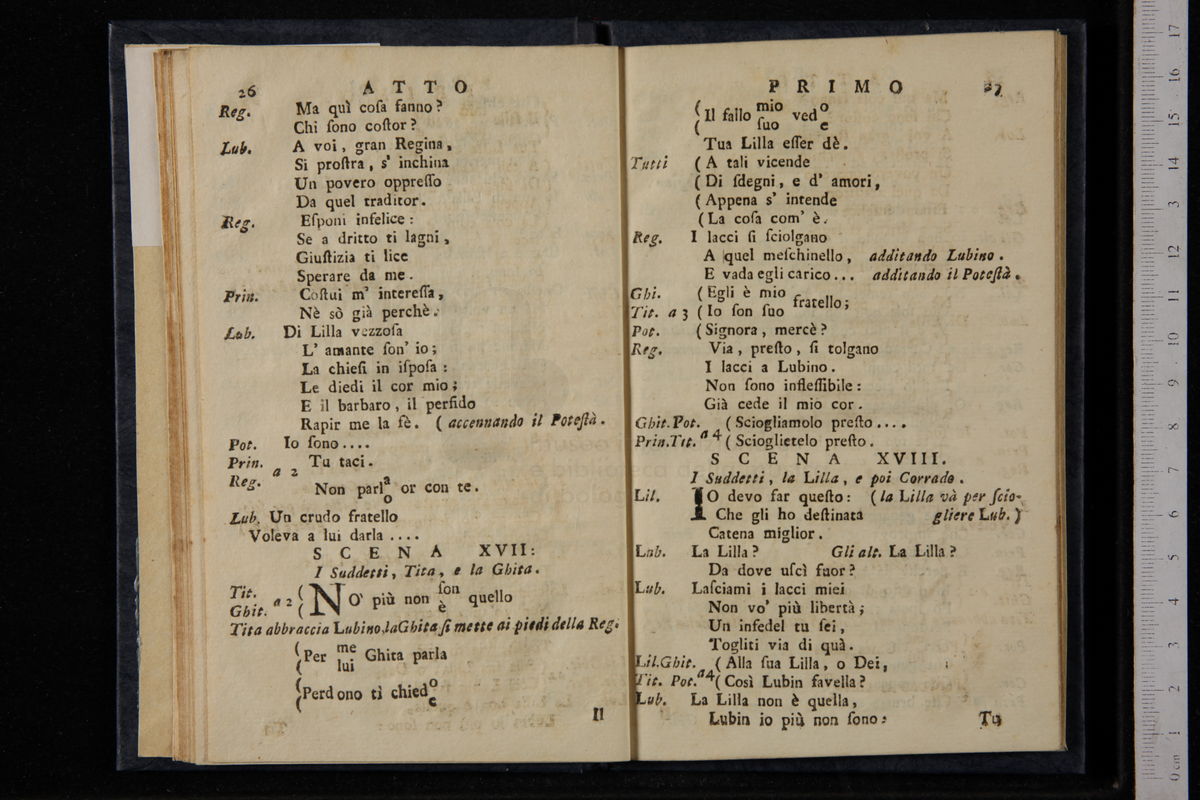 26 ATTO
Reg. Ma quì coſa fanno?
Chi ſono coſtor?
Lub. A voi, gran Regina,
Si proſtra, s' inchina
Un povero oppreſſo
Da quel traditor.
Reg. Eſponi infelice:
Se a dritto ti lagni,
Giuſtizia ti lice
Sperare da me.
Prin. Coſtui m' intereſſa,
Nè sò già perchè.
Lub. Di Lilla vezzoſa
L' amante ſon' io;
La chieſi in iſpoſa:
Le diedi il cor mio;
E il barbaro, il perfido
Rapir me la fè. ( accennando il Poteſtà.
Pot. Io ſono....
Prin. a 2 Tu taci.
Reg. Non parl a o or con te.
Lub. Un crudo fratello
Voleva a lui darla ....
SCENA XVII:
I Suddetti, Tita, e la Ghita.
Tit. Ghit. a 2 ( NO' più non ſon è quello
Tita abbraccia Lubino, la Ghita ſi mette ai piedi della Reg.
( Per me lui Ghita parla
( Perdono tì chied o e
Il
PRIMO 27
( Il fallo mio ſuo ved o e
Tua Lilla eſſer dè.
Tutti ( A tali vicende
( Di ſdegni, e d' amori,
( Appena s' intende
( La coſa com' è.
Reg. I lacci ſi ſciolgano
A quel meſchinello, additando Lubino.
E vada egli carico... additando il Poteſtà.
Ghi. ( Egli è mio fratello;
Tit. a 3 ( Io ſon ſuo
Pot. ( Signora, mercè?
Reg. Via, preſto, ſi tolgano
I lacci a Lubino.
Non ſono infleſſibile:
Già cede il mio cor.
Ghit. Pot. ( Sciogliamolo preſto....
Prin. Tit. a 4 ( Scioglietelo preſto.
SCENA XVIII.
I Suddetti, la Lilla, e poi Corrado.
Lil. IO devo far queſto: (la Lilla và per ſcio-
Che gli ho deſtinata gliere Lub.)
Catena miglior.
Lub. La Lilla? Gli alt. La Lilla?
Da dove uſcì fuor?
Lub. Laſciami i lacci miei
Non vo' più libertà;
Un infedel tu ſei,
Togliti via di quà.
Lil. Ghit. ( Alla ſua Lilla, o Dei,
Tit. Pot. a 4 ( Così Lubin favella?
Lub. La Lilla non è quella,
Lubin io più non ſono:
Tu